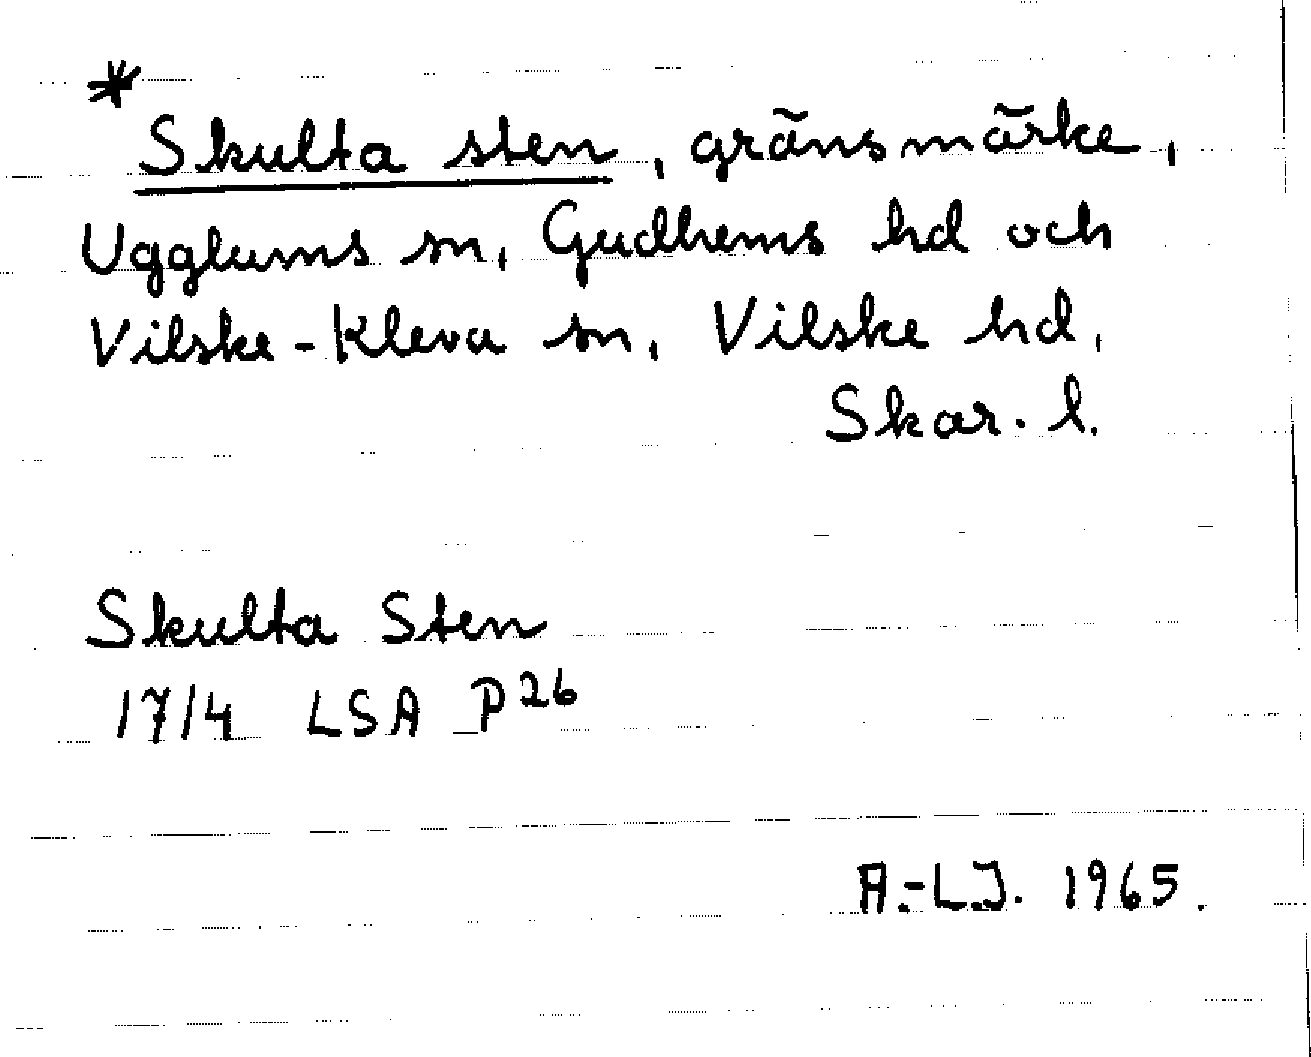 *
Skulta sten, gränsmärke,
Ugglums sn, Gudhems hd och
Vilske-Kleva sn, Vilske hd,
Skar. l.
Skulta Sten
17/4 LSA P26
A.-L.J. 1965.